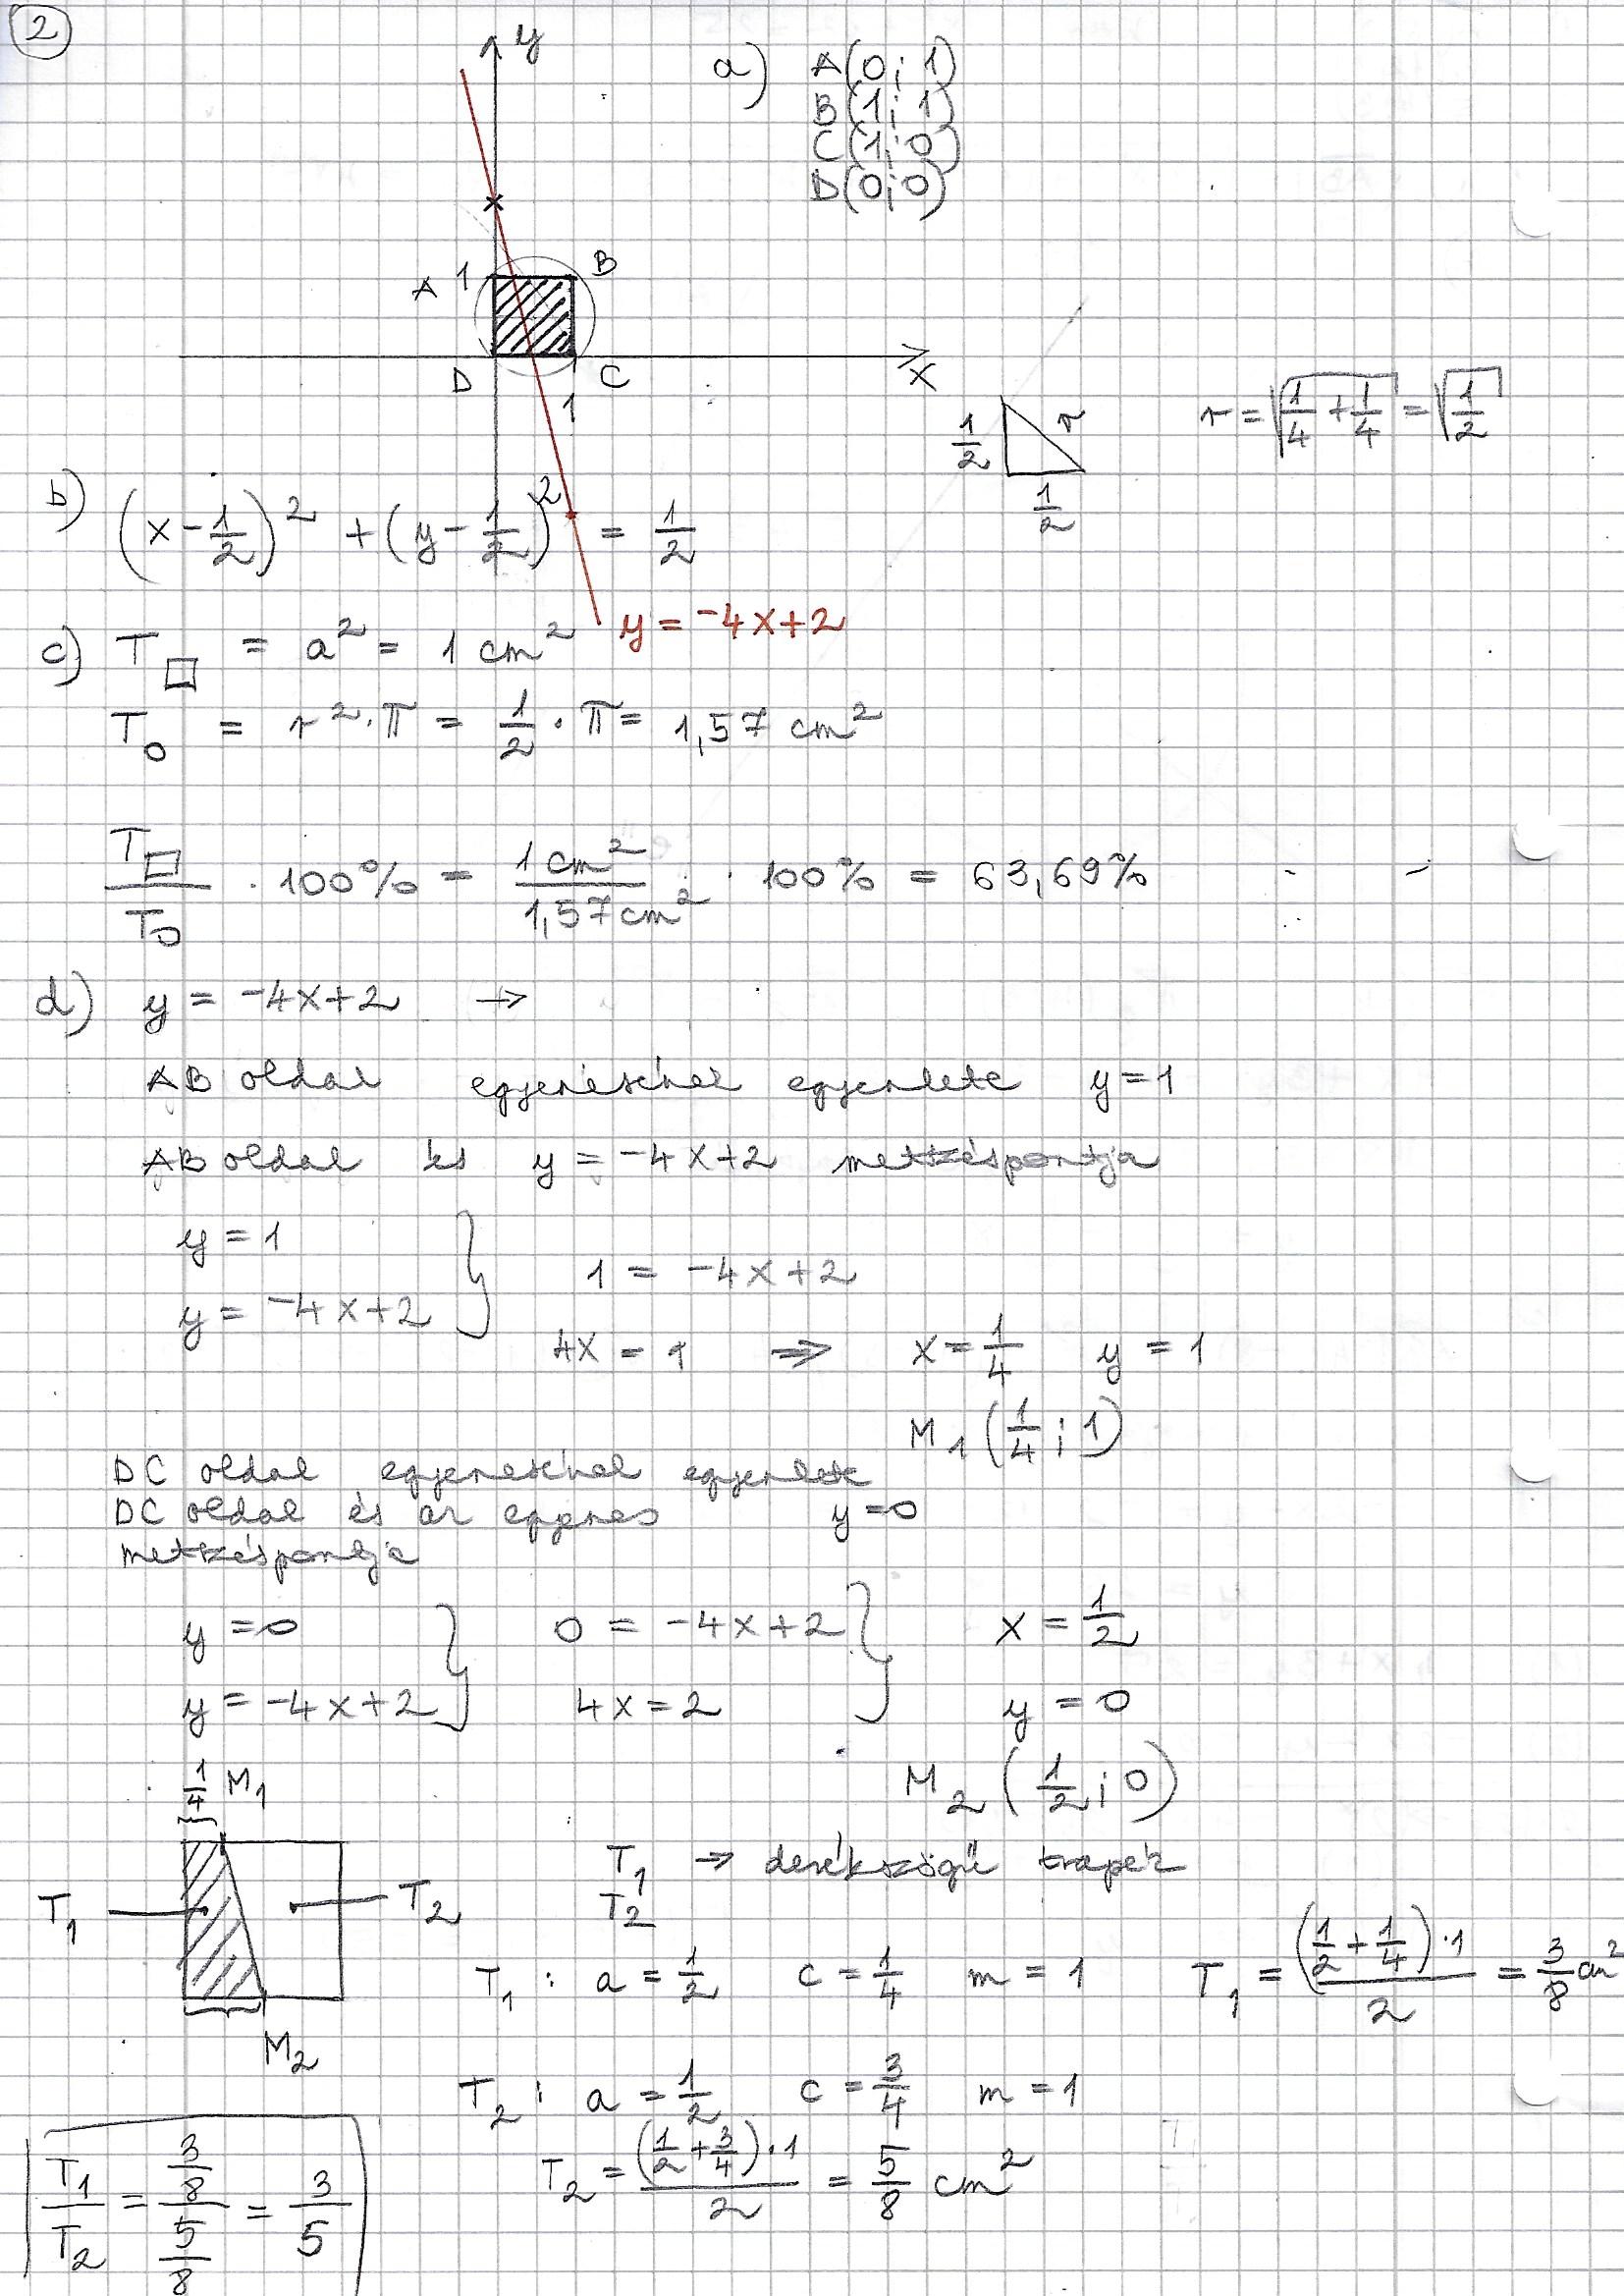 2
y
a) A(0;1)
B(1;1)
C(1;0)
D(0;0)
A 1 B
D C x
1
1/2 r 1/2
r = √(1/4 + 1/4) = √(1/2)
b) (x - 1/2)² + (y - 1/2)² = 1/2
y = -4x+2
c) T□ = a² = 1 cm²
T○ = r²·π = 1/2 · π = 1,57 cm²
T□/T○ · 100% = 1 cm²/1,57 cm² · 100% = 63,69%
d) y = -4x+2 →
AB oldal egyenesének egyenlete y=1
AB oldal és y = -4x+2 metszéspontja
y = 1
y = -4x+2 } 1 = -4x+2
4x = 1 ⇒ x = 1/4 y = 1
M₁ (1/4 ; 1)
DC oldal egyenesének egyenlete
DC oldal és az egyenes y=0
metszéspontja
y = 0 } 0 = -4x+2 } x = 1/2
y = -4x+2 4x = 2 y = 0
M₂ (1/2 ; 0)
1/4 M₁
T₁ → derékszögű trapéz
T₂
T₁ T₂
M₂
T₁ : a = 1/2 c = 1/4 m = 1 T₁ = (1/2 + 1/4)·1 / 2 = 3/8 cm²
T₂ : a = 1/2 c = 3/4 m = 1
T₂ = (1/2 + 3/4)·1 / 2 = 5/8 cm²
T₁/T₂ = (3/8)/(5/8) = 3/5